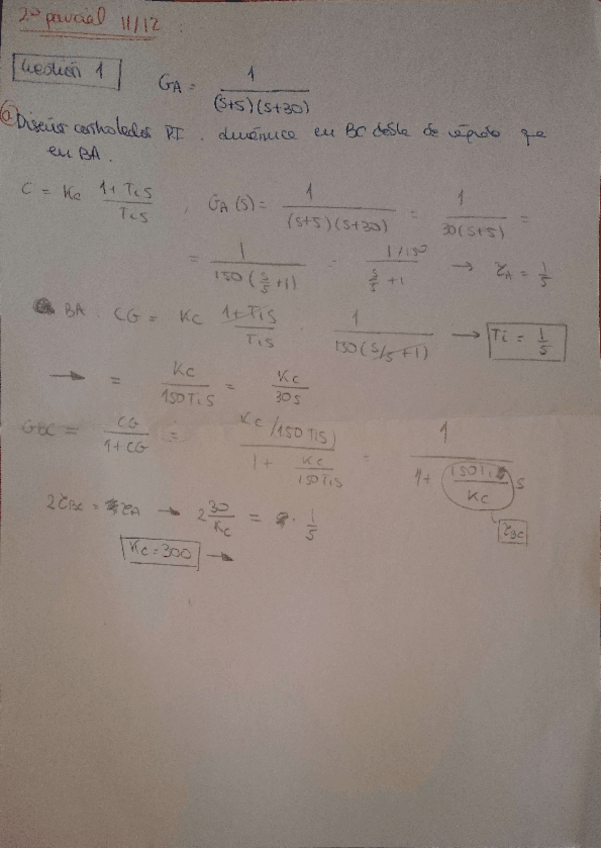 2º parcial 11/12
Cuestión 1 GA = 1 / (s+5)(s+30)
a) Diseñar controlador PI. dinámica en BC doble de rápido que
en BA.
C = Kc (1+Tis / Tis) ; GA(s) = 1 / (s+5)(s+30) = 1 / 30(s+5) =
= 1 / 150(s/5 + 1) = 1/150 / (s/5 + 1) → τA = 1/5
BA. CG = Kc (1+Tis / Tis) · 1 / 150(s/5+1) → Ti = 1/5
→ = Kc / 150Tis = Kc / 30s
GBC = CG / 1+CG = Kc/150Tis / (1 + Kc / 150Tis) = 1 / (1 + (150Ti / Kc) s)
τBC
2τBC = τA → 2 30/Kc = · 1/5
Kc = 300 →